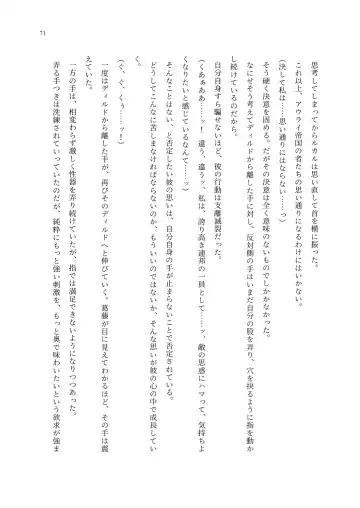 71
思考してしまってからルカルは思い直して首を横に振った。
これ以上、アウライ帝国の者たちの思い通りになるわけにはいかない。
（決して私は……思い通りにはならない……っ）
そう硬く決意を固める。だがその決意は全く意味のないものでしかなかった。
なにせそう考えてディルドから離した手に対し、反対側の手はいまだ自分の股を弄り、穴を抉るように指を動か
し続けているのだから。
自分自身すら騙せないほど、彼の行動は支離滅裂だった。
（くあぁああ……ッ！　違う、違うッ、私は、誇り高き連邦の一員として……ッ、敵の思惑にハマって、気持ちよ
くなりたいと感じているなんて……ッ）
そんなことはない、と否定したい彼の思いは、自分自身の手が止まらないことで否定されている。
どうしてこんなに苦しまなければならないのか、もういいのではないか、そんな思いが彼の心の中で成長してい
く。
（ぐ、ぐ、くぅ……ッ！）
一度はディルドから離した手が、再びそのディルドへと伸びていく。葛藤が目に見えてわかるほど、その手は震
えていた。
一方の手は、相変わらず激しく性器を弄り続けていたが、指では満足できないようになりつつあった。
弄る手つきは洗練されていったのだが、純粋にもっと強い刺激を、もっと奥で味わいたいという欲求が強ま